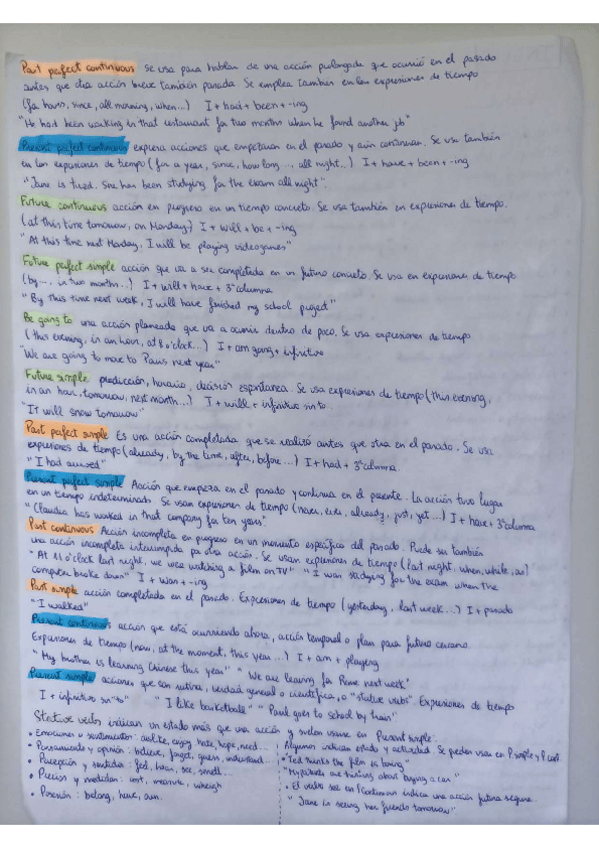 Past perfect continuous se usa para hablar de una acción prolongada que ocurrió en el pasado
antes que otra acción breve también pasada. Se emplea tambien en las expresiones de tiempo
(for hours, since, all morning, when...) I + had + been + -ing
"He had been working in that restaurant for two months when he found another job"
Present perfect continuous expresa acciones que empezaron en el pasado y aún continuan. Se usa también
en las expresiones de tiempo (for a year, since, how long ..., all night..) I + have + been + -ing
"Jane is tired. She has been studying for the exam all night".
Future continuous acción en progreso en un tiempo concreto. Se usa también en expresiones de tiempo.
(at this time tomorrow, on Monday) I + will + be + -ing
"At this time next Monday, I will be playing videogames"
Future perfect simple acción que va a ser completada en un futuro concreto. Se usa en expresiones de tiempo
(by..., in two months...) I + will + have + 3ª columna
"By this time next week, I will have finished my school project"
Be going to una acción planeada que va a ocurrir dentro de poco. Se usa expresiones de tiempo
(this evening, in an hour, at 8 o'clock...) I + am going + infinitivo
"We are going to move to Paris next year"
Future simple predicción, horario, decisión espontanea. Se usa expresiones de tiempo (this evening,
in an hour, tomorrow, next month...) I + will + infinitivo sin to.
"It will snow tomorrow"
Past perfect simple Es una acción completada que se realizó antes que otra en el pasado. Se usa
expresiones de tiempo (already, by the time, after, before...) I + had + 3ª columna.
"I had arrived"
Present perfect simple Acción que empieza en el pasado y continua en el presente. La acción tuvo lugar
en un tiempo indeterminado. Se usan expresiones de tiempo (never, ever, already, just, yet...) I + have + 3ª columna
"Claudia has worked in that company for ten years"
Past continuous Acción incompleta en progreso en un momento específico del pasado. Puede ser también
una acción incompleta interrumpida por otra acción. Se usan expresiones de tiempo (last night, when, while, as)
"At 11 o'clock last night, we were watching a film on TV" "I was studying for the exam when the
computer broke down" I + was + -ing
Past simple acción completada en el pasado. Expresiones de tiempo (yesterday, last week...) I + pasado
"I walked"
Present continuous acción que está ocurriendo ahora, acción temporal o plan para futuro cercano.
Expresiones de tiempo (now, at the moment, this year...) I + am + playing
"My brother is learning Chinese this year" "We are leaving for Rome next week"
Present simple acciones que son rutina, verdad general o científica, o "stative verbs". Expresiones de tiempo
I + infinitivo sin "to" "I like basketball" "Paul goes to school by train"
Stative verbs indican un estado más que una acción y suelen usarse en Present simple.
• Emociones o sentimientos: dislike, enjoy, hate, hope, need...
• Pensamiento y opinión: believe, forget, guess, understand...
• Percepción y sentidos: feel, hear, see, smell...
• Precios y medidas: cost, measure, wheigh
• Posesión: belong, have, own.
Algunos indican estado y actividad. Se pueden usar en P. simple y P. cont.
• "Ted thinks the film is boring"
"My parents are thinking about buying a car"
• El verbo see en P. continuous indica una acción futura segura.
"Jane is seeing her friends tomorrow"